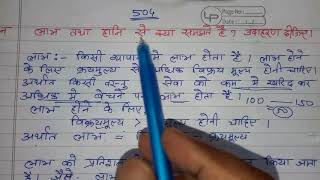 504
Page No.:
Date:
लाभ तथा हानि से क्या समझते हैं? उदाहरण दीजिए।
लाभ:- किसी व्यापार में लाभ होता है। लाभ होने
के लिए क्रयमूल्य से अधिक विक्रय मूल्य होनी चाहिए
अर्थात किसी वस्तु सेवा को कम में खरीद कर
अधिक में बेचने पर लाभ होता है। 100 150
लाभ होने के लिए, 50
विक्रयमूल्य > मूल्य होनी चाहिए
अर्थात लाभ = क्रयमूल्य
लाभ को प्रतिशत में किया जाता
है। जैसे-